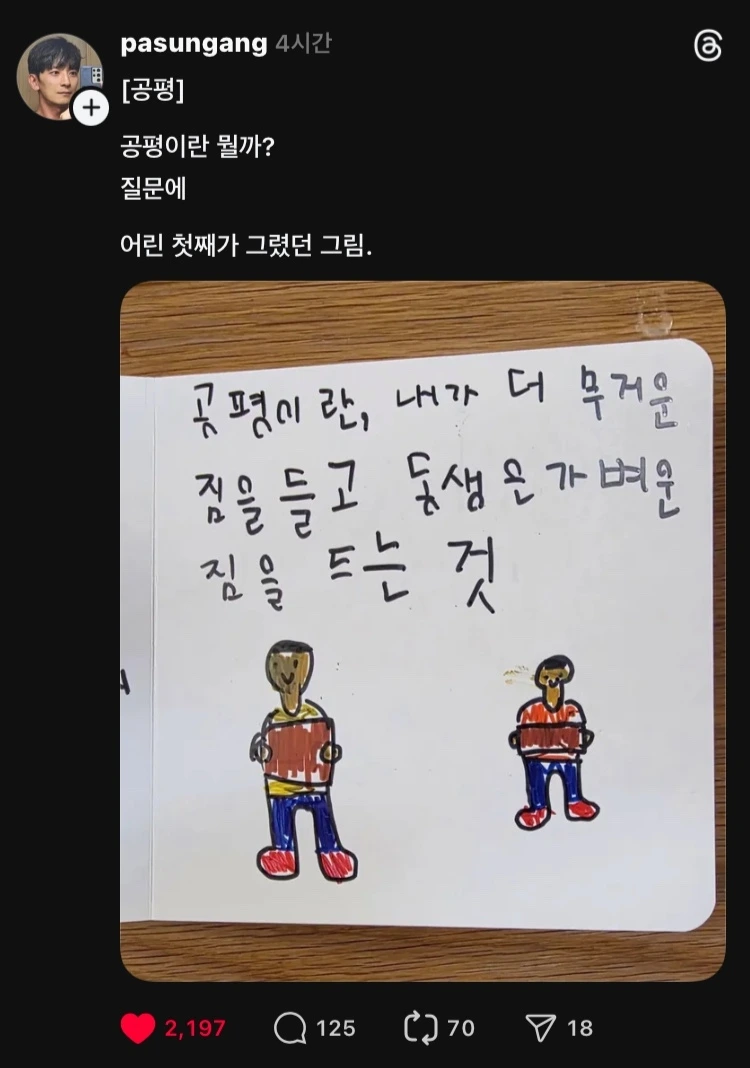 pasungang 4시간
[공평]
공평이란 뭘까?
질문에
어린 첫째가 그렸던 그림.
공평이란, 내가 더 무거운
짐을 들고 동생은 가벼운
짐을 드는 것
2,197 125 70 18